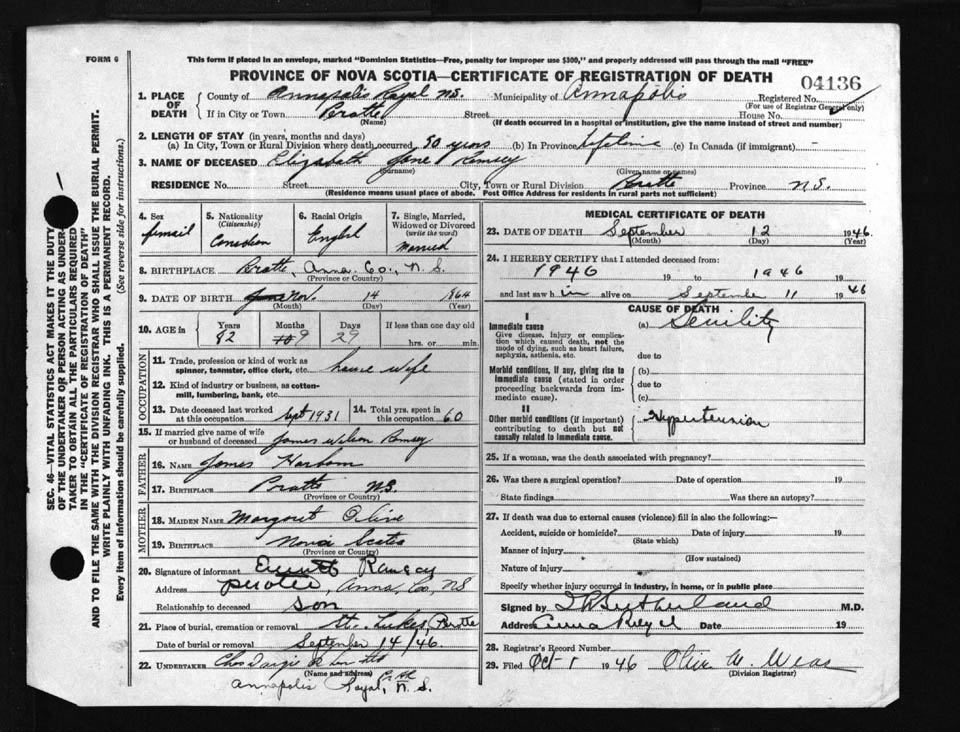 FORM 6
This form if placed in an envelope, marked "Dominion Statistics—Free, penalty for improper use $300," and properly addressed will pass through the mail "FREE"
PROVINCE OF NOVA SCOTIA—CERTIFICATE OF REGISTRATION OF DEATH
04136
1. PLACE OF DEATH { County of Annapolis Royal N.S. Municipality of Annapolis Registered No.
(For use of Registrar General only)
If in City or Town Perotte Street House No.
(Name) (If death occurred in a hospital or institution, give the name instead of street and number)
2. LENGTH OF STAY (in years, months and days)
(a) In City, Town or Rural Division where death occurred 50 years (b) In Province Lifetime (c) In Canada (if immigrant) -
3. NAME OF DECEASED Elizabeth Jane Ramsey
(Surname) (Given name or names)
RESIDENCE No. Street City, Town or Rural Division Perotte Province N.S.
(Residence means usual place of abode. Post Office Address for residents in rural parts not sufficient)
4. Sex femail
5. Nationality (Citizenship) Canadian
6. Racial Origin English
7. Single, Married, Widowed or Divorced (write the word) Married
8. BIRTHPLACE Perotte, Anna. Co., N.S.
(Province or Country)
9. DATE OF BIRTH Nov. 14 1864
(Month) (Day) (Year)
10. AGE in { Years 82 Months 9 Days 29 If less than one day old
hrs. or min.
OCCUPATION
11. Trade, profession or kind of work as spinner, teamster, office clerk, etc. house wife
12. Kind of industry or business, as cotton-mill, lumbering, bank, etc.
13. Date deceased last worked at this occupation Sept 1931 14. Total yrs. spent in this occupation 60
15. If married give name of wife or husband of deceased James Wilson Ramsey
FATHER
16. NAME James
17. BIRTHPLACE Perotte N.S.
(Province or Country)
MOTHER
18. MAIDEN NAME Margaret Olive
19. BIRTHPLACE Nova Scotia
(Province or Country)
20. Signature of informant Ramsay
Address perotte, Anna, Co, NS
Relationship to deceased son
21. Place of burial, cremation or removal St. Lukes, Perotte
Date of burial or removal September 14/46.
22. UNDERTAKER Chas Dargie
(Name and address)
Annapolis Royal, N.S.
MEDICAL CERTIFICATE OF DEATH
23. DATE OF DEATH September 12 1946.
(Month) (Day) (Year)
24. I HEREBY CERTIFY that I attended deceased from:
1946 19 to 1946 19
and last saw h im alive on September 11 19 46
CAUSE OF DEATH
I
Immediate cause
Give disease, injury or complication which caused death, not the mode of dying, such as heart failure, asphyxia, asthenia, etc.
(a) Senility
due to
Morbid conditions, if any, giving rise to immediate cause (stated in order proceeding backwards from immediate cause).
(b)
due to
(c)
II
Other morbid conditions (if important) contributing to death but not causally related to immediate cause.
Hypertension
25. If a woman, was the death associated with pregnancy?
26. Was there a surgical operation? Date of operation 19
State findings Was there an autopsy?
27. If death was due to external causes (violence) fill in also the following:—
Accident, suicide or homicide? Date of injury 19
(State which)
Manner of injury
(How sustained)
Nature of injury
Specify whether injury occurred in industry, in home, or in public place
Signed by Sutherland M.D.
Address Anna Royal Date 19
28. Registrar's Record Number
29. Filed Oct 1 19 46 Olive M.
(Division Registrar)
SEC. 46—VITAL STATISTICS ACT MAKES IT THE DUTY
OF THE UNDERTAKER OR PERSON ACTING AS UNDER-
TAKER TO OBTAIN ALL THE PARTICULARS REQUIRED
IN THE "CERTIFICATE OF REGISTRATION OF DEATH"
AND TO FILE THE SAME WITH THE DIVISION REGISTRAR WHO SHALL ISSUE THE BURIAL PERMIT.
WRITE PLAINLY WITH UNFADING INK. THIS IS A PERMANENT RECORD.
Every item of information should be carefully supplied. (See reverse side for instructions.)